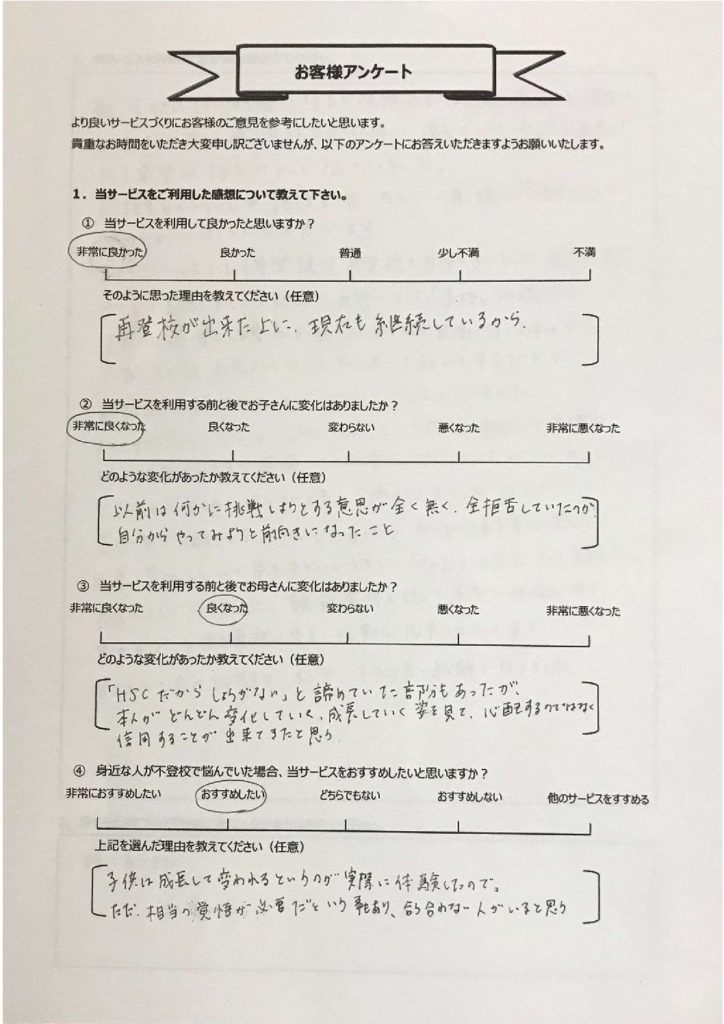 お客様アンケート
より良いサービスづくりにお客様のご意見を参考にしたいと思います。
貴重なお時間をいただき大変申し訳ございませんが、以下のアンケートにお答えいただきますようお願いいたします。
1．当サービスをご利用した感想について教えて下さい。
① 当サービスを利用して良かったと思いますか？
非常に良かった 良かった 普通 少し不満 不満
そのように思った理由を教えてください（任意）
再登校が出来た上に、現在も継続しているから。
② 当サービスを利用する前と後でお子さんに変化はありましたか？
非常に良くなった 良くなった 変わらない 悪くなった 非常に悪くなった
どのような変化があったか教えてください（任意）
以前は何かに挑戦しようとする意思が全く無く、全拒否していたのが、
自分からやってみようと前向きになったこと
③ 当サービスを利用する前と後でお母さんに変化はありましたか？
非常に良くなった 良くなった 変わらない 悪くなった 非常に悪くなった
どのような変化があったか教えてください（任意）
「HSCだからしょうがない」と諦めていた部分もあったが、
本人がどんどん変化していく、成長していく姿を見て、心配するのではなく
信用することが出来てきたと思う
④ 身近な人が不登校で悩んでいた場合、当サービスをおすすめしたいと思いますか？
非常におすすめしたい おすすめしたい どちらでもない おすすめしない 他のサービスをすすめる
上記を選んだ理由を教えてください（任意）
子供は成長して変われるというのが実際に体験したので。
ただ、相当の覚悟が必要だという事もあり、合う合わない人がいると思う